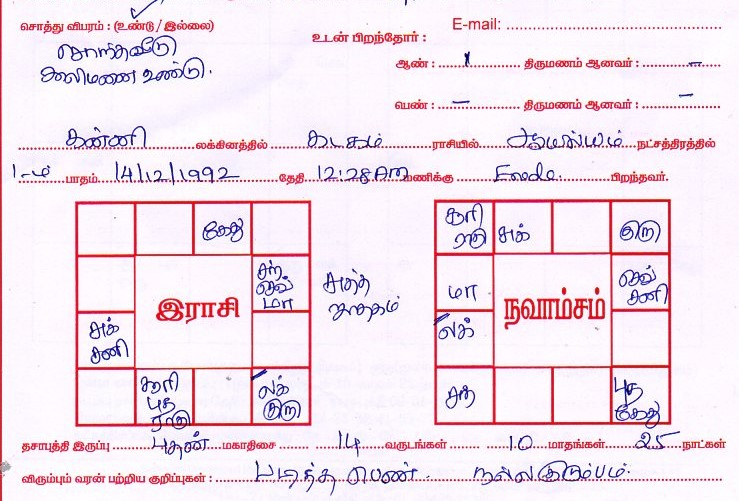 சொத்து விபரம் : (உண்டு / இல்லை) E-mail:
சொந்தவீடு உடன் பிறந்தோர் :
காலிமனை உண்டு. ஆண் : 1 திருமணம் ஆனவர் : –
பெண் : – திருமணம் ஆனவர் : –
கன்னி லக்கினத்தில் கடகம் ராசியில் ஆயில்யம் நட்சத்திரத்தில்
1-ம் பாதம் 14/12/1992 தேதி 12:28 AM மணிக்கு Erode பிறந்தவர்.
கேது
சந் செவ் மா
இராசி
சுக் சனி
சூரி புத ராகு
லக் குரு
சுத்த ஜாதகம்
சூரி ராகு சுக் குரு
மா செவ் சனி
நவாம்சம்
லக்
சந் புத கேது
தசாபுத்தி இருப்பு புதன் மகாதிசை 14 வருடங்கள் 10 மாதங்கள் 25 நாட்கள்
விரும்பும் வரன் பற்றிய குறிப்புகள் : படித்த பெண். நல்ல குடும்பம்.